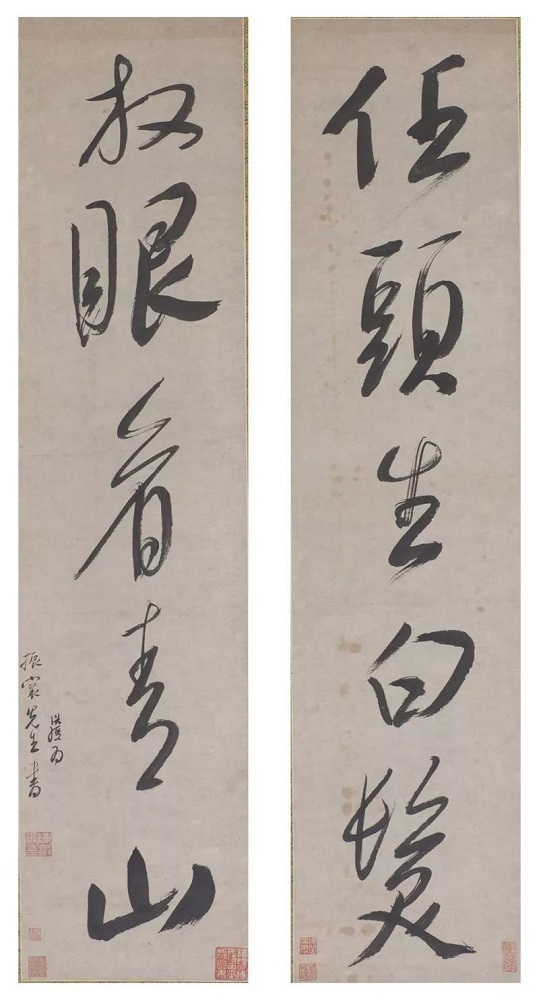 任頭生白髮
放眼看青山
洪綬為
振寰先生書